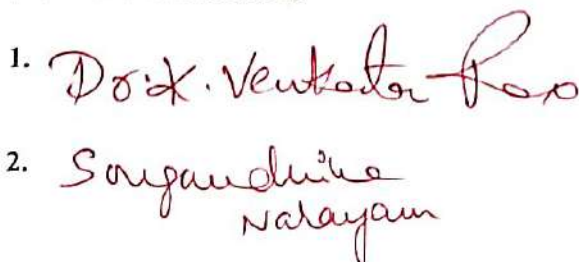 1. Dr. K. Venkata Rao
2. Sougandhika
Narayan